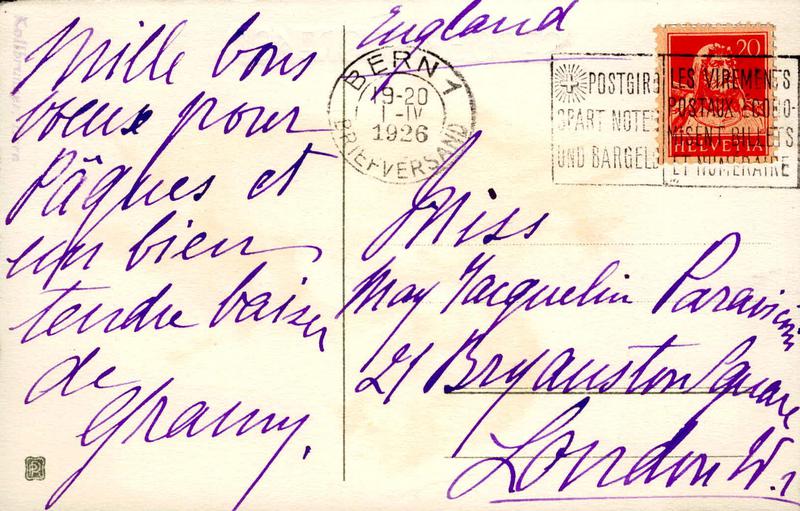 Mille bons
vœux pour
Pâques et
un bien
tendre baiser
de
Granny.
England
BERN 1
19-20
1-IV
1926
BRIEFVERSAND
POSTGIRO
SPART NOTEN
UND BARGELD
LES VIREMENTS
POSTAUX ÉCONO-
MISENT BILLETS
ET NUMÉRAIRE
20
HELVETIA
Miss
May Jacquelin Paravicini
21 Bryanston Square
London W.1